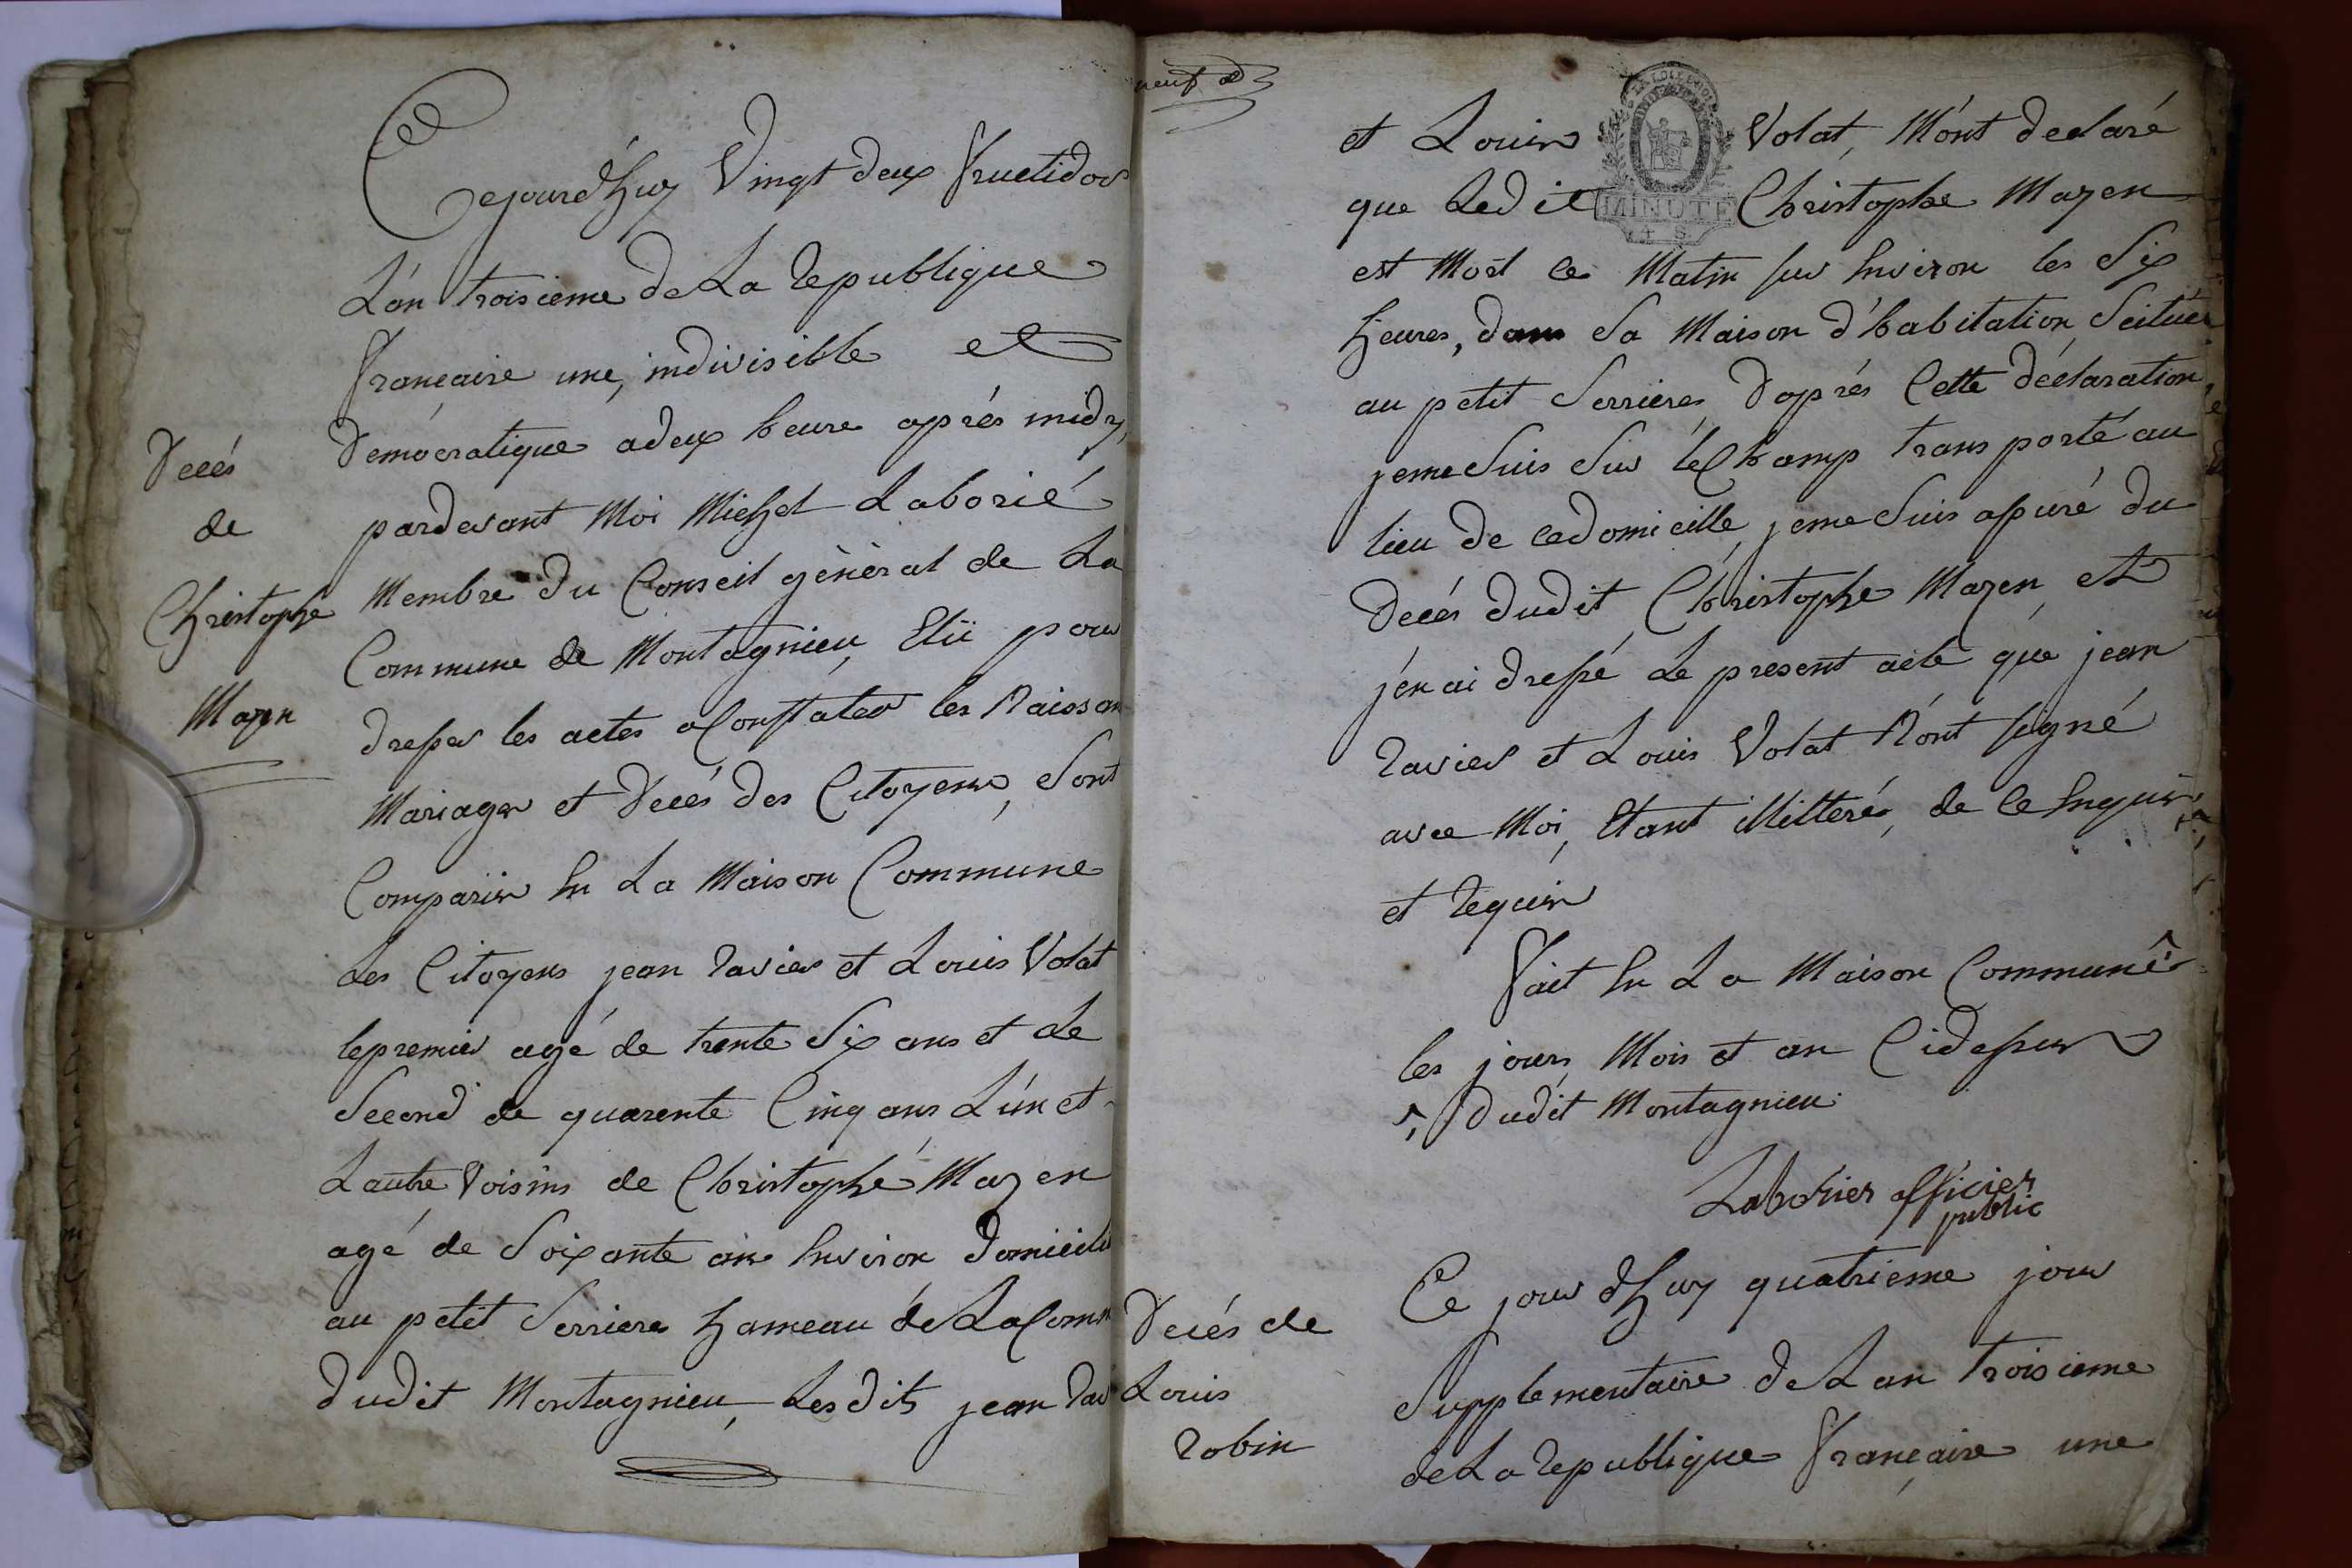 Décés
de
Christophe
Mazen
Cejourd'huy Vingt deux fructidor
L'an troisieme de La republique
françaire une, indivisible et
Démocratique adeux heure aprés midy,
pardevant Moi Michel Laborié
Membre du Conseil général de La
Commune de Montagnieu, Elü pour
dresser les actes aConstater les Naissan
Mariages et Décés des Citoyens, Sont
Comparus En La Maison Commune
Les Citoyens jean Ravier et Louis Volat
lepremier agé de trente Six ans et Le
Second de quarente Cinq ans L'un et
L'autre Voisins de Christophe Mazen
agé de Soixante ans Environ domicilié
au petit Serrieres hameau de LaComm
dudit Montagnieu, Lesdits jean Rav
neuf
et Louis Volat, M'ont declaré
que Ledit Christophe Mazen
MINUTE
4 S.
est Mort ce Matin sur Environ les Six
heures, dans Sa Maison d'habitation, Scituée
au petit Serrieres, D'aprés Cette déclaration
jeme Suis Sur leChamp transporté au
lieu de cedomicille, jeme Suis assuré du
Décés dudit Christophe Mazen, et
j'en ai dressé Le present acte que jean
Ravier et Louis Volat N'ont signé
avec Moi, Etant illitterés, de ce Enquis
et requis
Fait En La Maison Commune
les jours, Mois et an Cidessus
dudit Montagnieu.
Laborier officier
public
Décés de
Louis
Robin
Ce jour d'huy quatrieme jour
Supplementaire de L'an troisieme
deLa republique françaire une